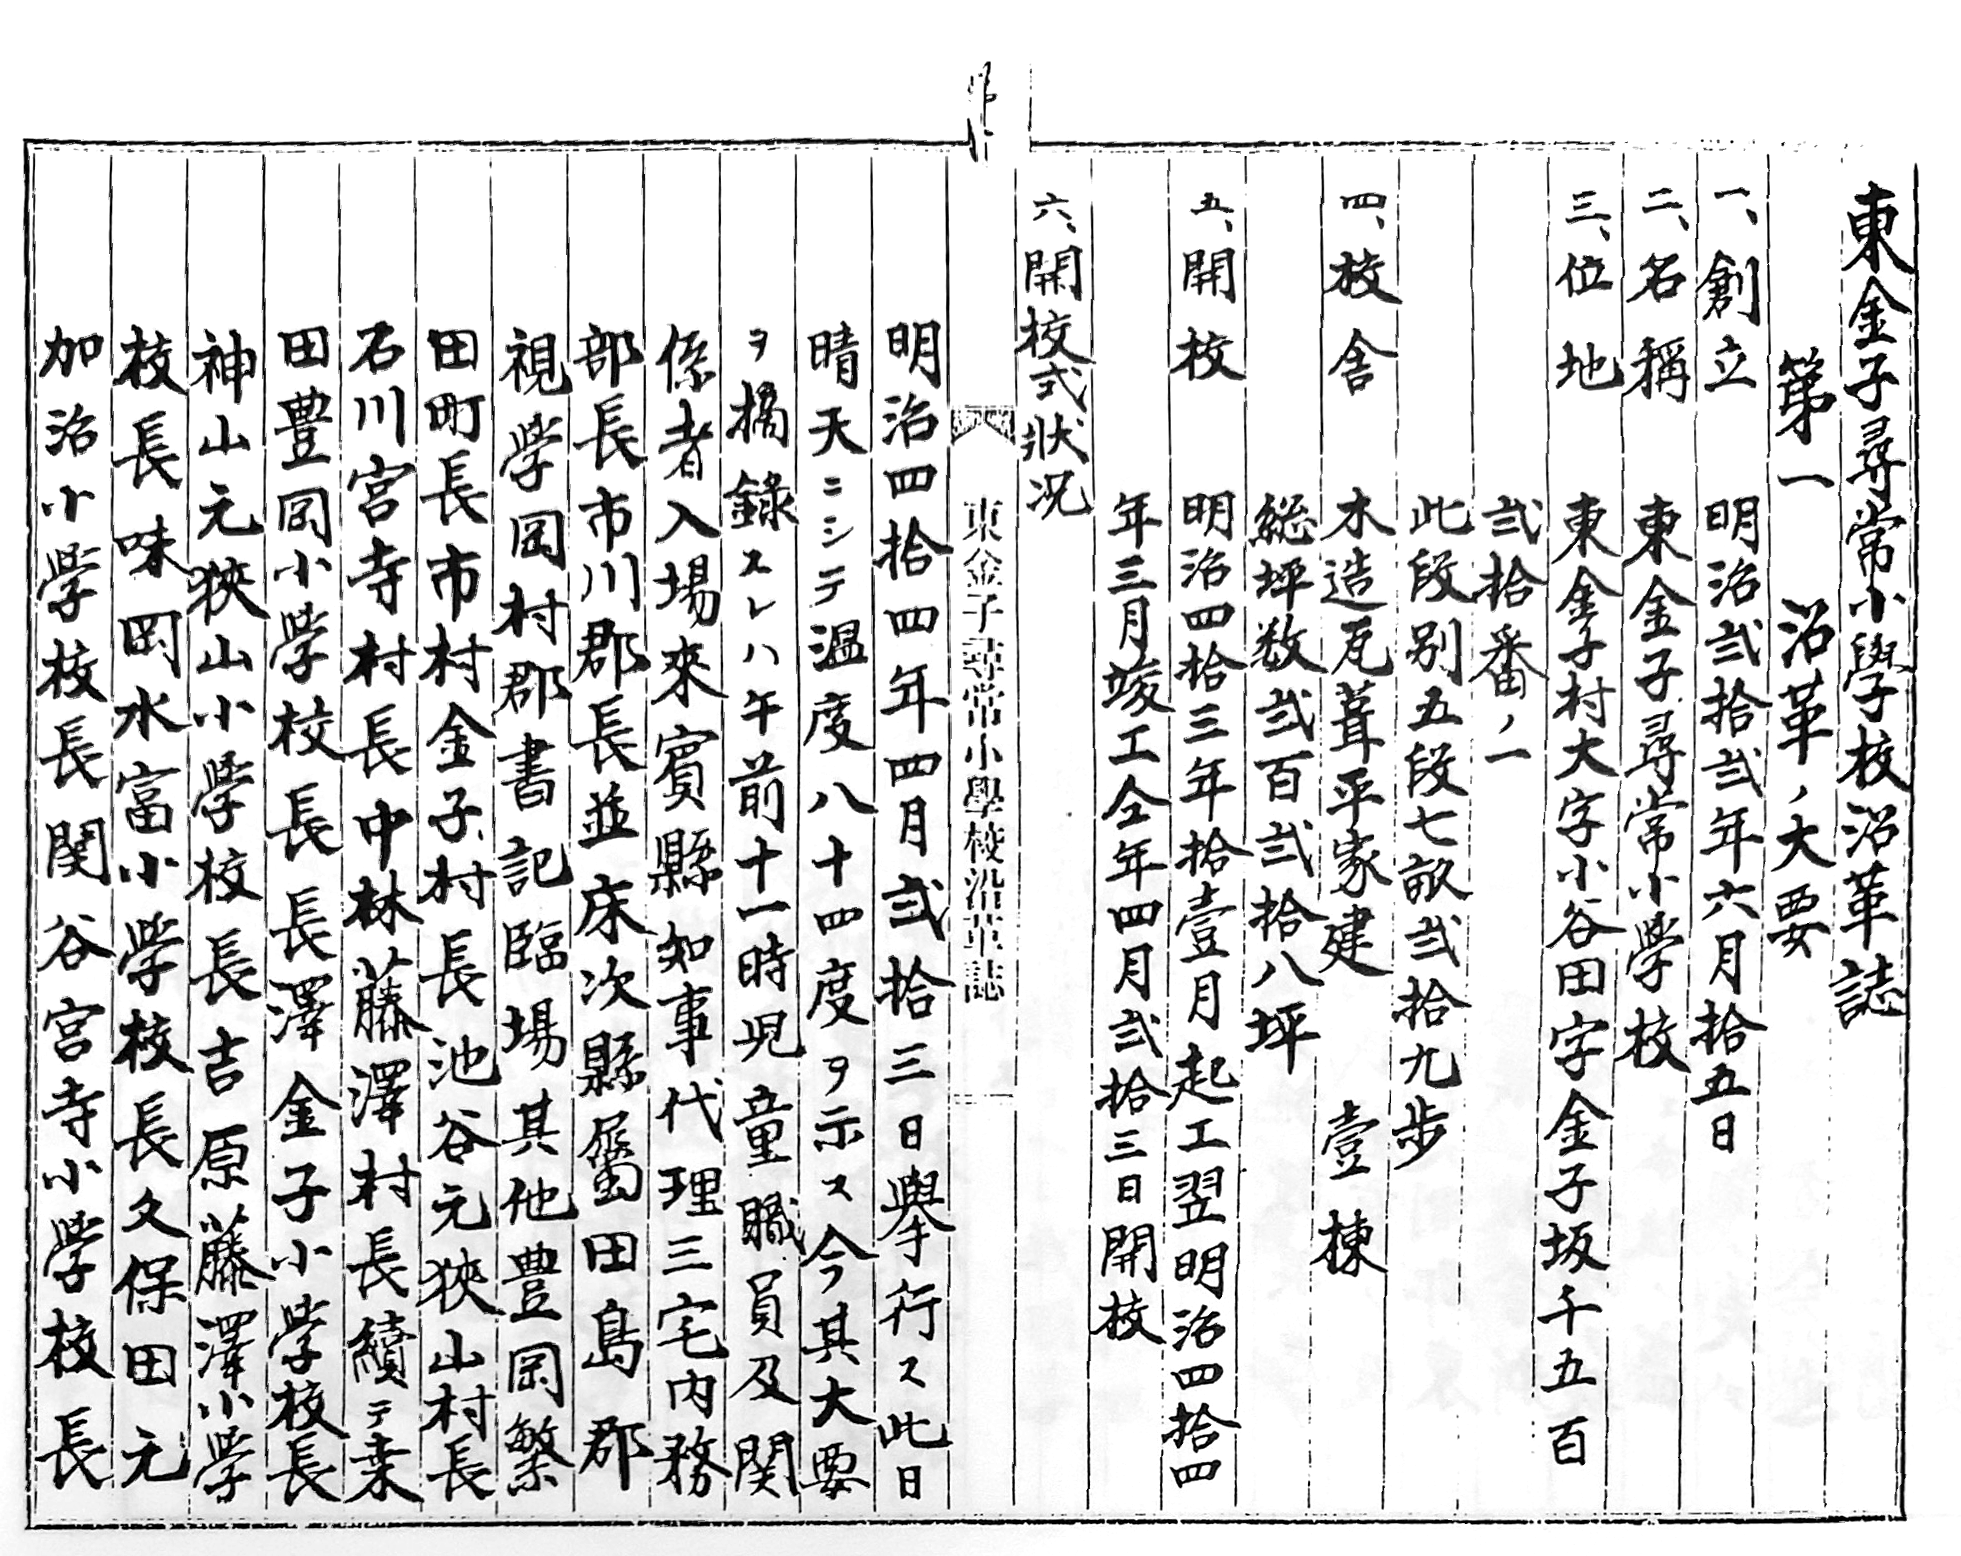 東金子尋常小學校沿革誌
第一　沿革ノ大要
一、創立　明治弐拾弐年六月拾五日
二、名稱　東金子尋常小学校
三、位地　東金子村大字小谷田字金子坂千五百
弐拾番ノ一
此段別五段七畝弐拾九歩
四、校舎　木造瓦葺平家建　壹棟
総坪数弐百弐拾八坪
五、開校　明治四拾三年拾壹月起工翌明治四拾四
年三月竣工仝年四月弐拾三日開校
六、開校式状况
東金子尋常小學校沿革誌
明治四拾四年四月弐拾三日擧行ス此日
晴天ニシテ温度八十四度ヲ示ス今其大要
ヲ摘録スレハ午前十一時児童職員及関
係者入場來賓縣知事代理三宅内務
部長市川郡長並床次縣屬田島郡
視学岡村郡書記臨場其他豊岡繁
田町長市村金子村長池谷元狹山村長
石川宮寺村長中林藤澤村長續テ桒
田豊岡小学校長長澤金子小学校長
神山元狹山小学校長吉原藤澤小学
校長味岡水富小学校長久保田元
加治小学校長関谷宮寺小学校長